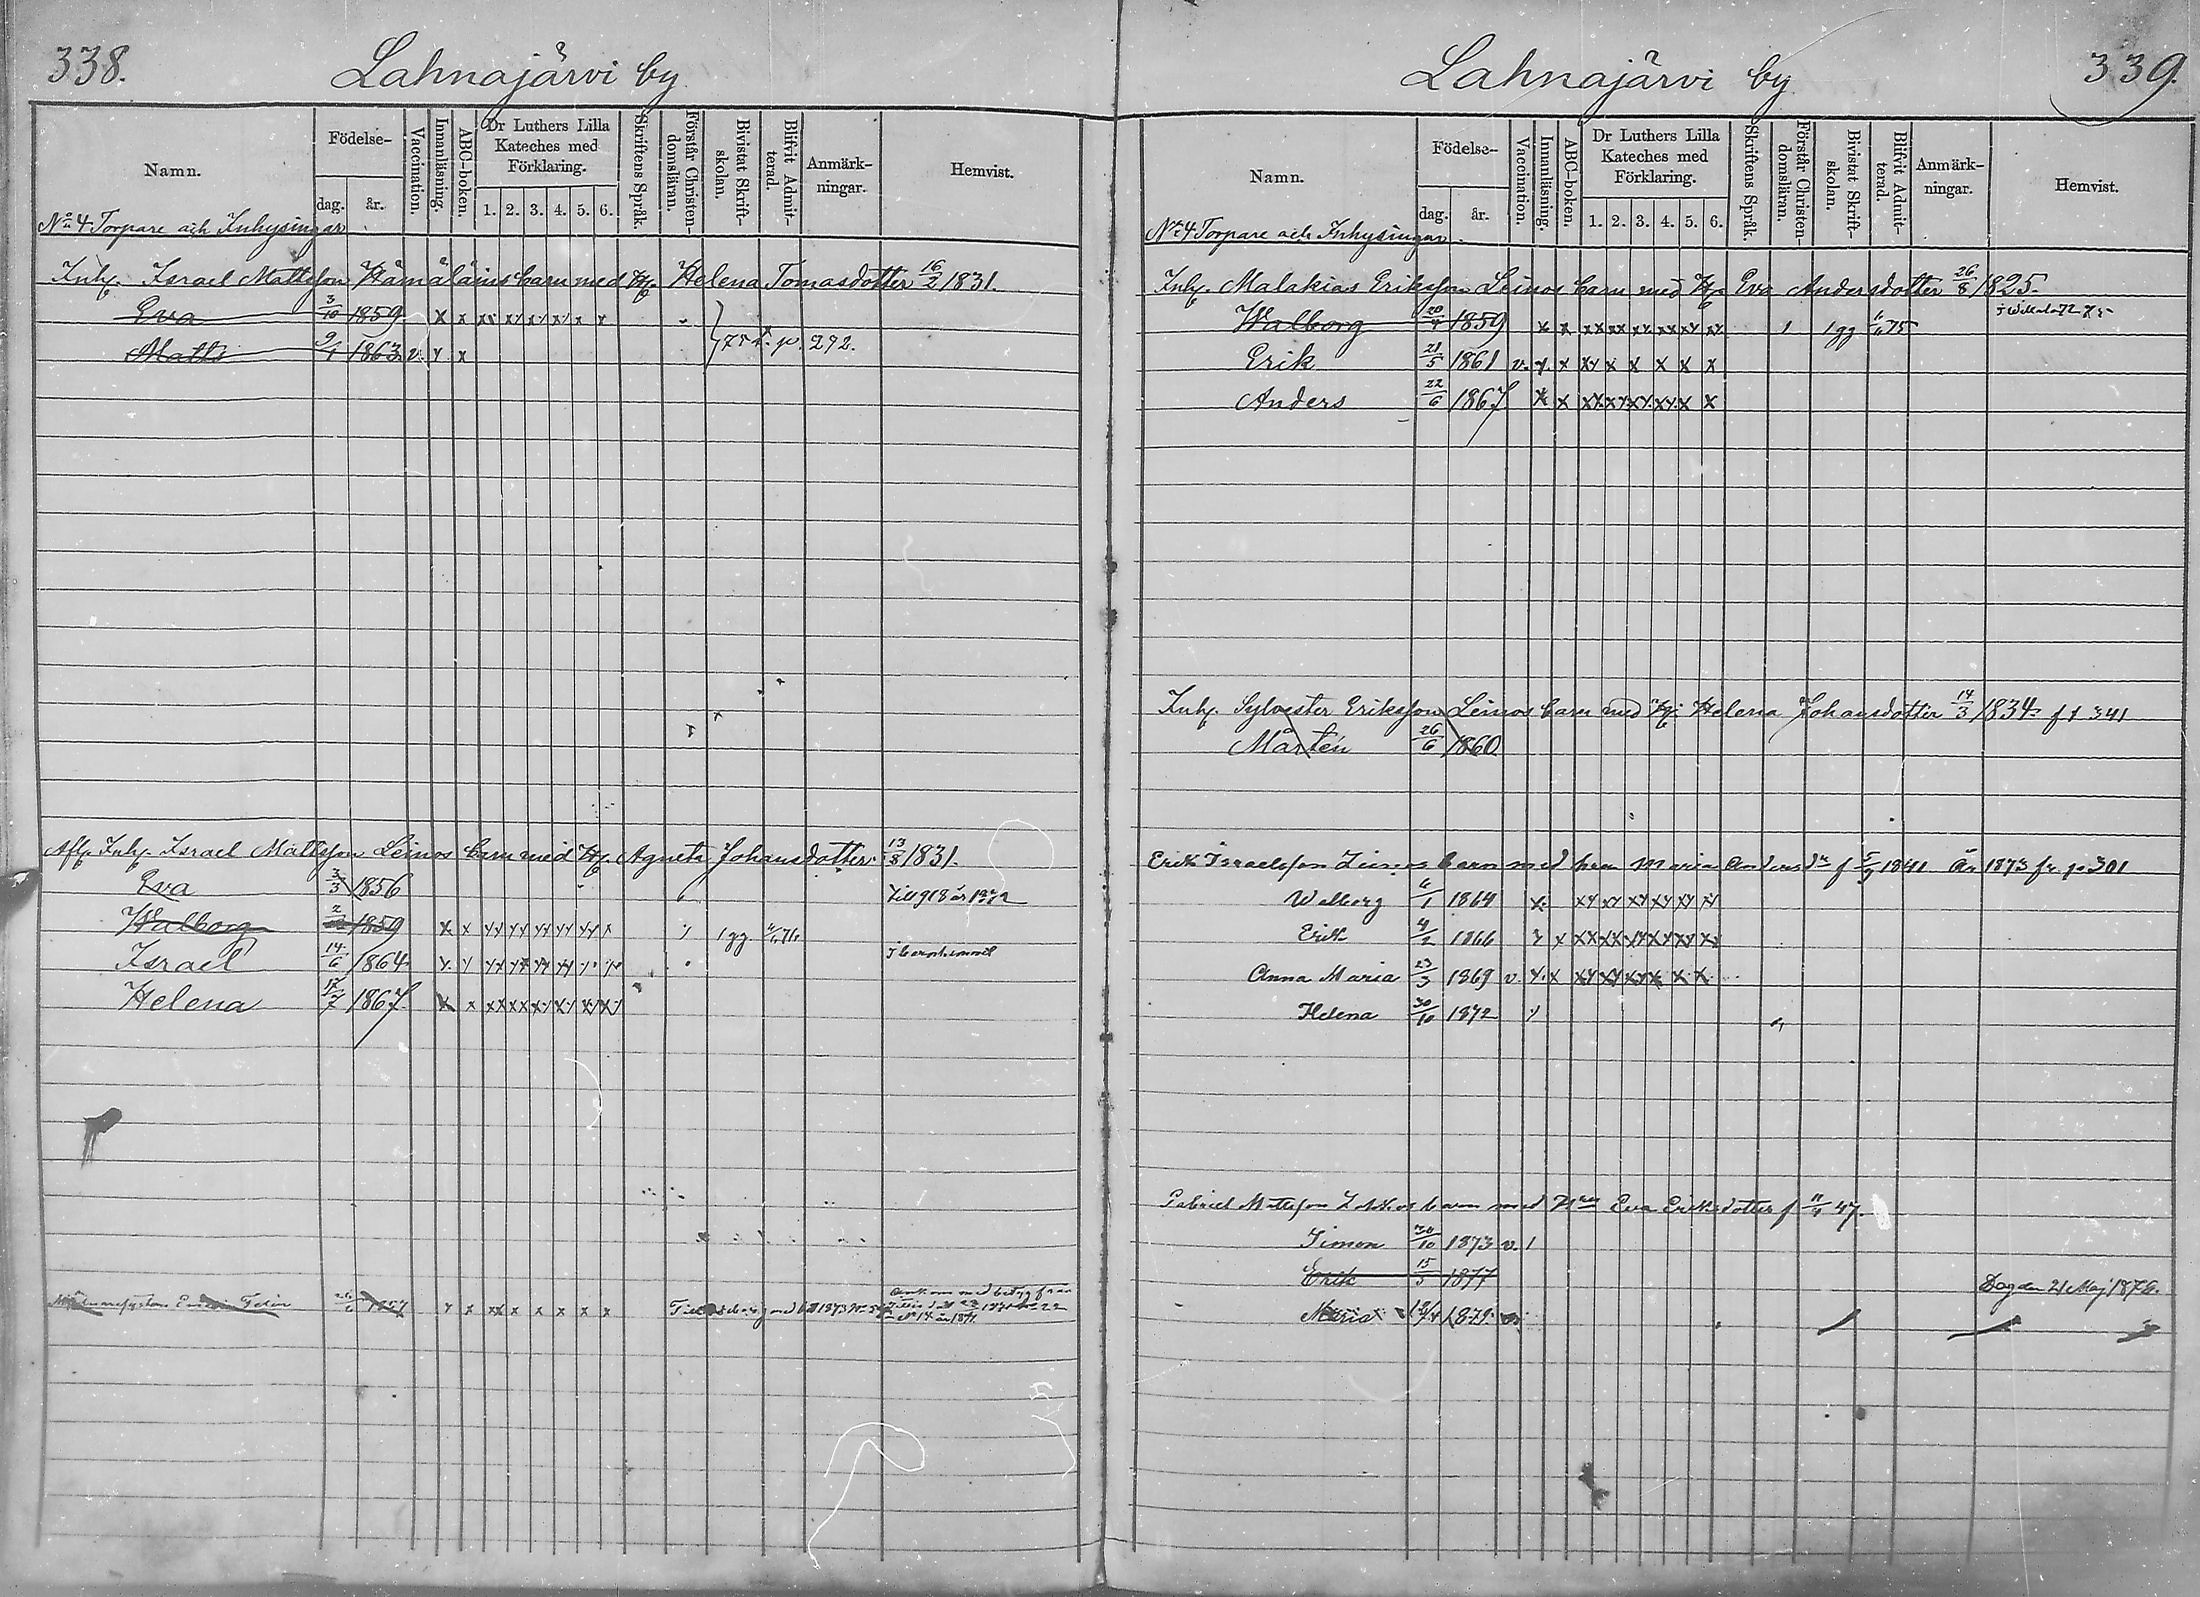 338.
Lahnajärvi by
Namn.
Födelse-
dag.
år.
Vaccination.
Innanläsning.
ABC-boken.
Dr Luthers Lilla
Kateches med
Förklaring.
1. 2. 3. 4. 5. 6.
Skriftens Språk.
Förstår Christen-
domsläran.
Bivistat Skrift-
skolan.
Blifvit Admit-
terad.
Anmärk-
ningar.
Hemvist.
No 4 Torpare och Inhysingar
Inh. Israel Mattsson Hämäläins barn med H. Helena Tomasdotter 16/2 1831.
Eva 3/10 1859 x x xx xy xy xy x x
Matts 9/1 1863 v. y x p. 292.
Afl. Inh. Israel Mattsson Leinos barn med H. Agneta Johansdotter 13/8 1831.
Eva 3/3 1856
Walborg 1859 x x 1 gg
Israel 14/6 1864
Helena 17/7 1867
339.
Lahnajärvi by
Namn.
Födelse-
dag.
år.
Vaccination.
Innanläsning.
ABC-boken.
Dr Luthers Lilla
Kateches med
Förklaring.
1. 2. 3. 4. 5. 6.
Skriftens Språk.
Förstår Christen-
domsläran.
Bivistat Skrift-
skolan.
Blifvit Admit-
terad.
Anmärk-
ningar.
Hemvist.
No 4 Torpare och Inhysingar.
Inh. Malakias Eriksson Leinos barn med H. Eva Andersdotter 26/8 1825.
Walborg 20/4 1859 x x xx xx xy xx xy xy 1 1 gg
Erik 21/5 1861 v. y. x xy x x x x x
Anders 22/6 1867 x x xx xy xy xy x x
Inh. Sylvester Eriksson Leinos barn med H. Helena Johansdotter 14/3 1834
341
Mårten 26/6 1860
Erik Israelsson Leinos barn med hru Maria Andersdr f 1841 År 1873 fr. p. 301
Walborg 6/1 1864 x xy xy xy xy xy xy
Erik 4/2 1866 y x xx xx xy xy xy xy
Anna Maria 23/3 1869 v. y. x xy xy xy x x x
Helena 30/10 1872 y
Gabriel Mattsson barn med Eva Eriksdotter f 47.
Simon 30/10 1873 v. 1
Erik 15/5 1877 Dog den 21 Maj 1878.
Maria 1879